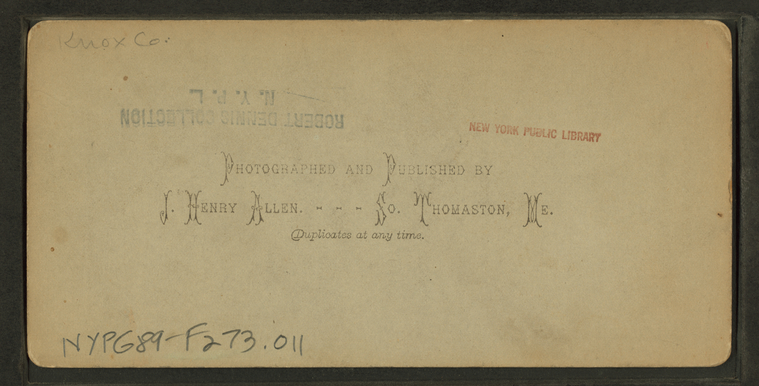 Knox Co.
ROBERT DENNIS COLLECTION
N. Y. P. L
NEW YORK PUBLIC LIBRARY
PHOTOGRAPHED AND PUBLISHED BY
J. HENRY ALLEN. - - - SO. THOMASTON, ME.
Duplicates at any time.
NYPG89-F273.011